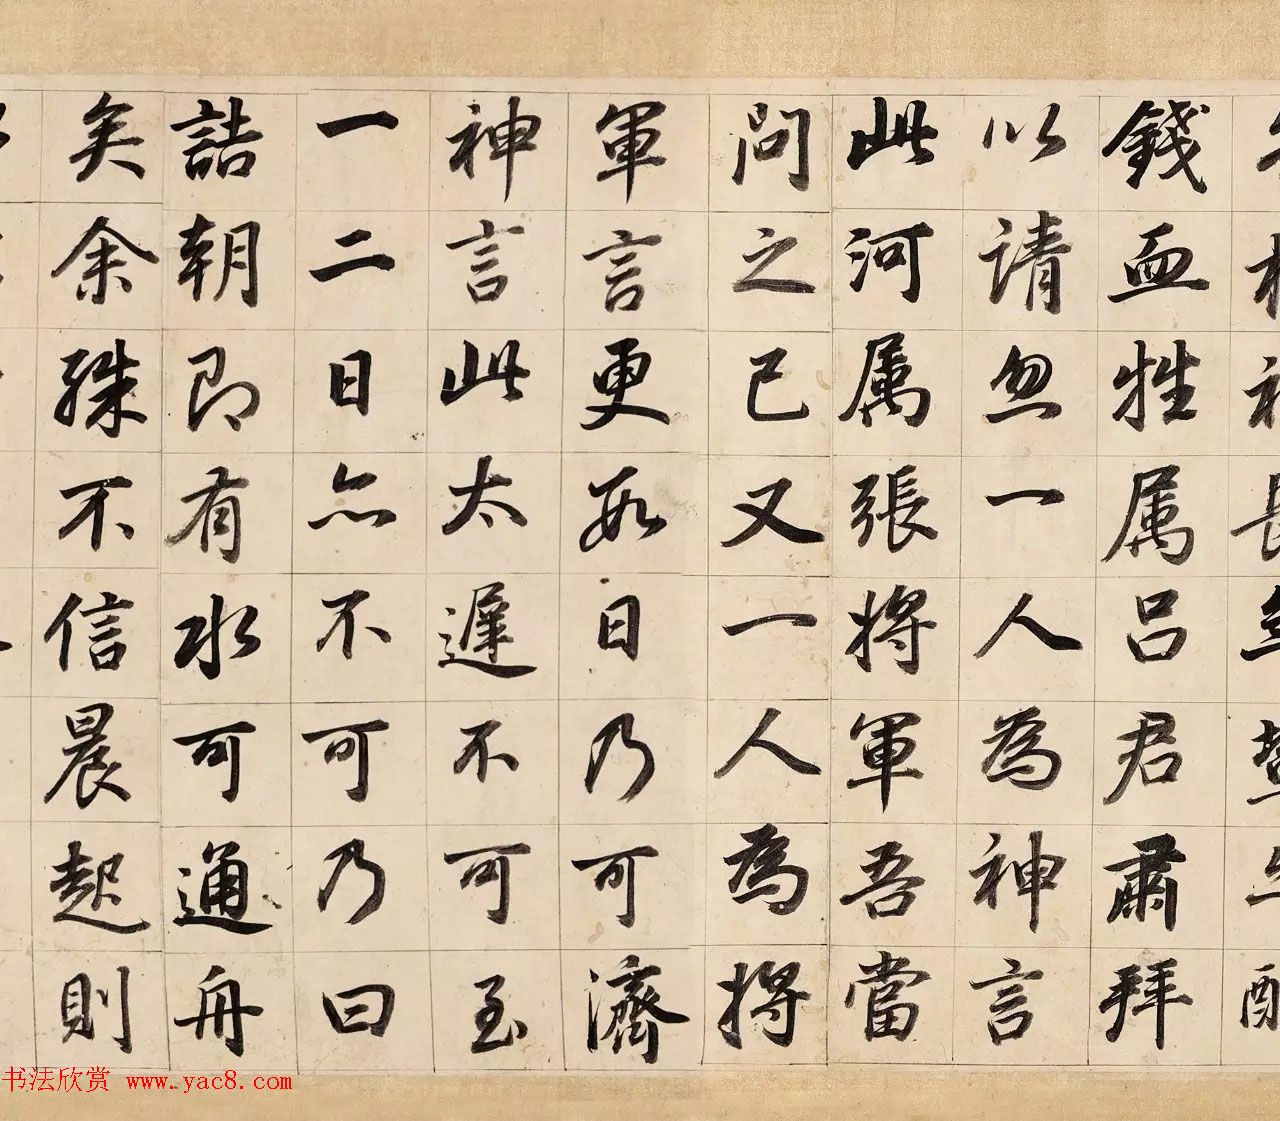 錢血牲属吕君肅拜
以请忽一人為神言
此河属張將軍吾當
問之已又一人為將
軍言更數日乃可濟
神言此太遲不可至
一二日亦不可乃曰
詰朝即有水可通舟
矣余殊不信晨起則
书法欣赏 www.yac8.com